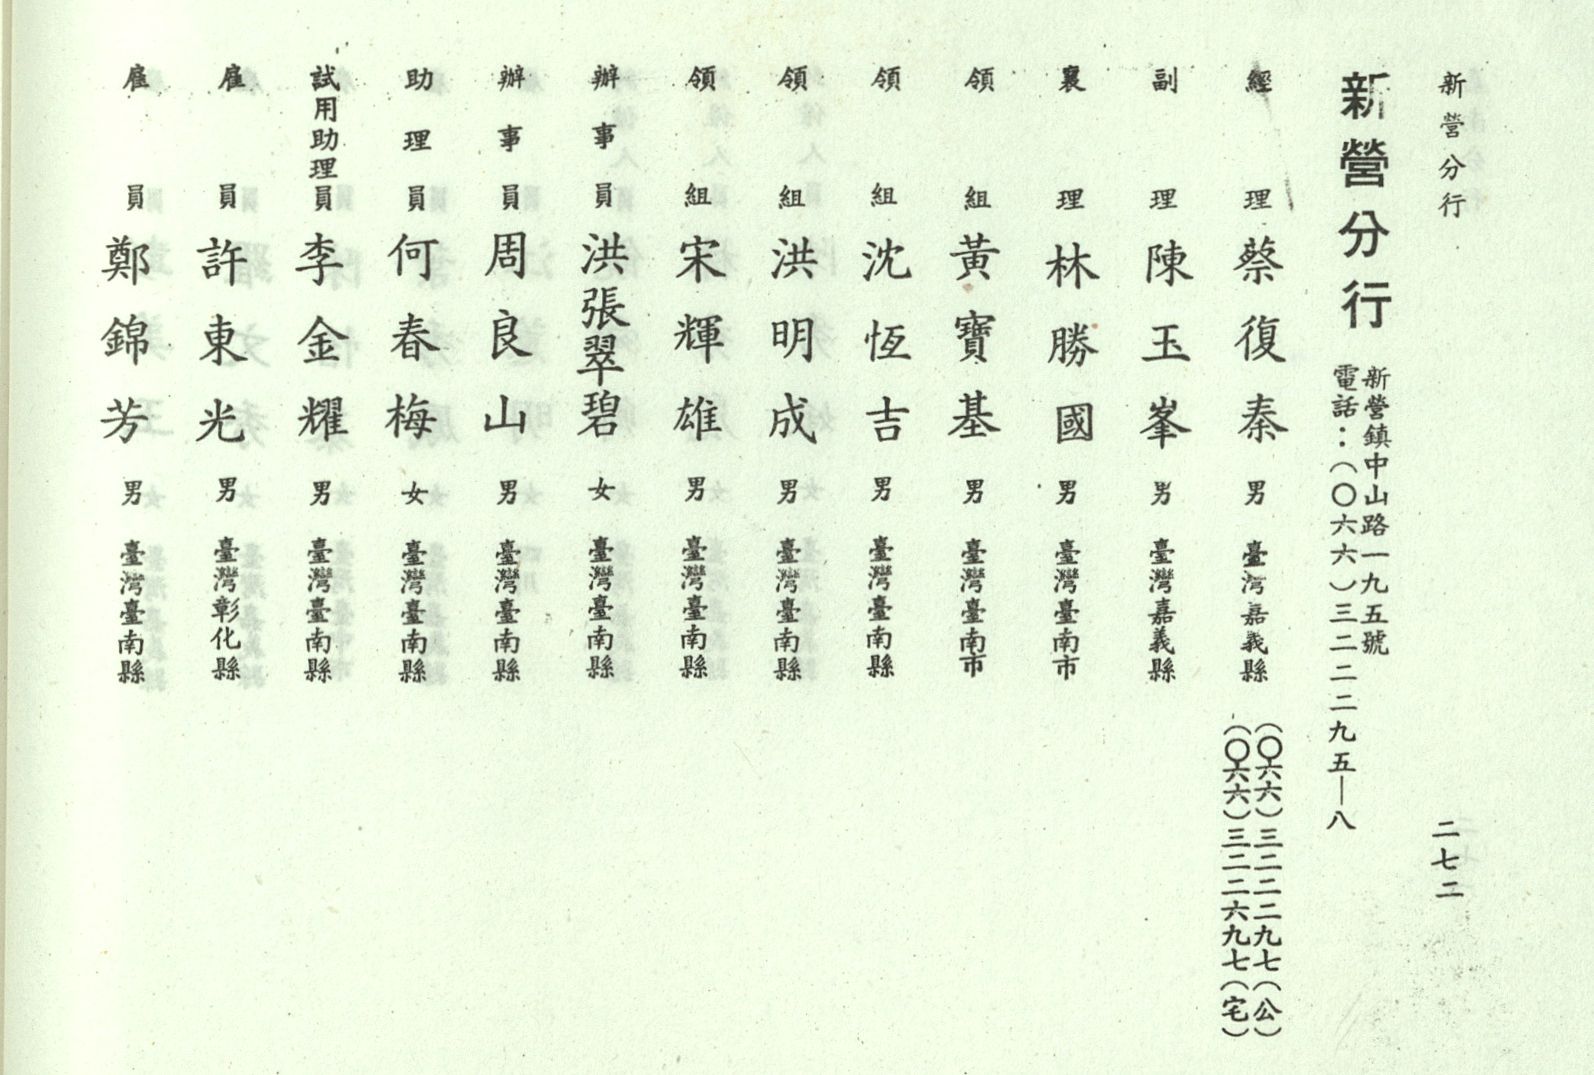 新營分行
二七二
新營分行
新營鎮中山路一九五號
電話：（〇六六）三二二二九五—八
經理 蔡復秦 男 臺灣嘉義縣 （〇六六）三二二二九七（公）
（〇六六）三二二六九七（宅）
副理 陳玉峯 男 臺灣嘉義縣
襄理 林勝國 男 臺灣臺南市
領組 黃寶基 男 臺灣臺南市
領組 沈恆吉 男 臺灣臺南縣
領組 洪明成 男 臺灣臺南縣
領組 宋輝雄 男 臺灣臺南縣
辦事員 洪張翠碧 女 臺灣臺南縣
辦事員 周良山 男 臺灣臺南縣
助理員 何春梅 女 臺灣臺南縣
試用助理員 李金耀 男 臺灣臺南縣
雇員 許東光 男 臺灣彰化縣
雇員 鄭錦芳 男 臺灣臺南縣